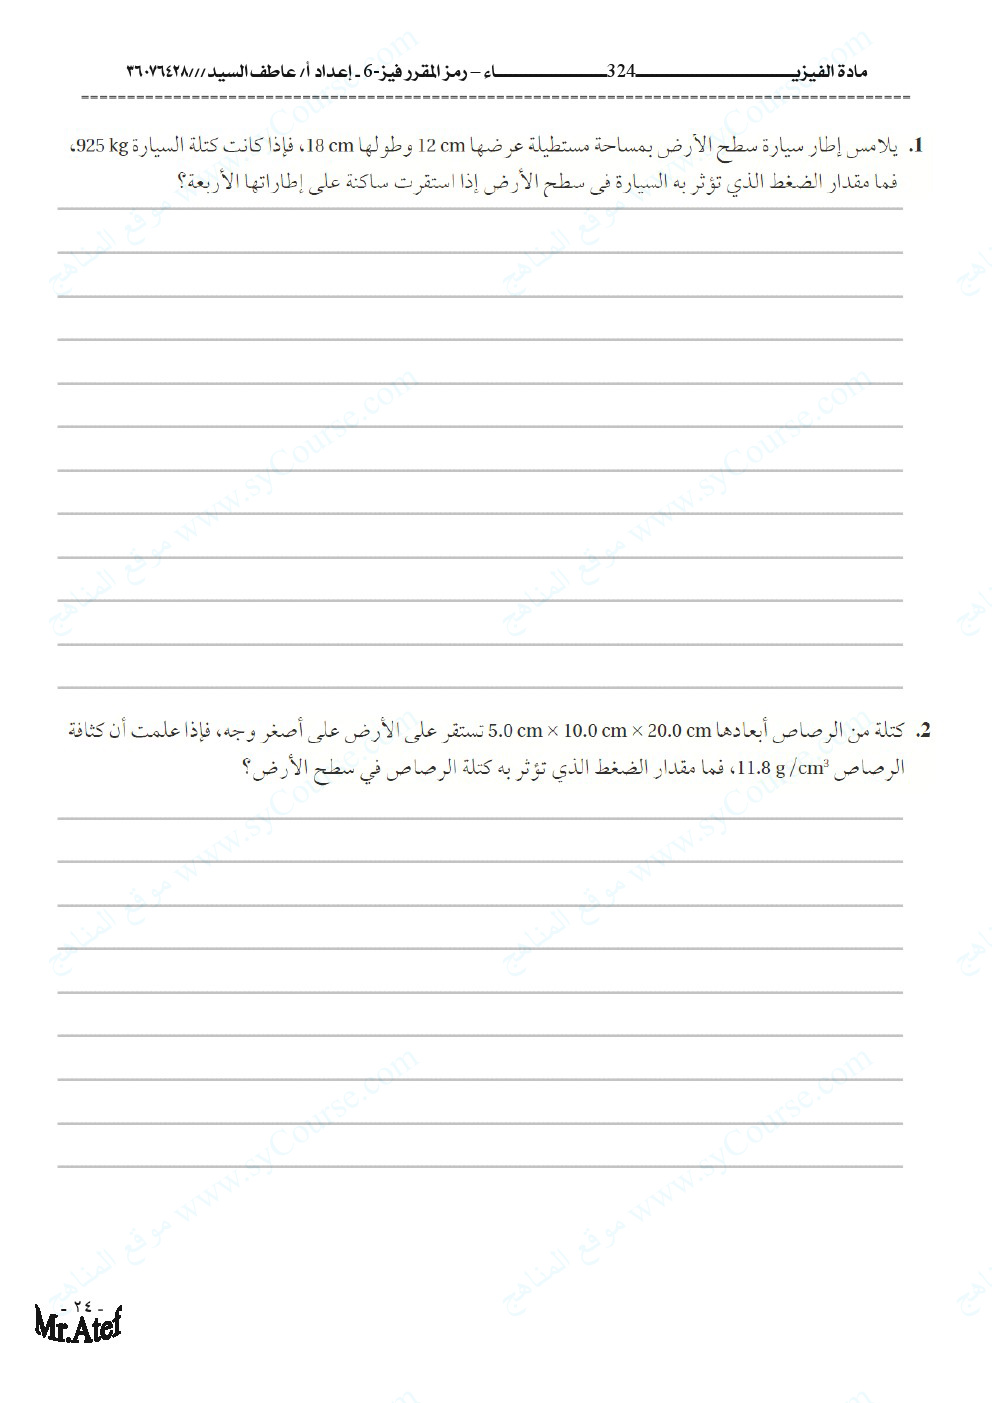 مادة الفيزيـــــــــــــــــ324ـــــــــــــــــاء – رمز المقرر فيز-6 ـ إعداد أ/ عاطف السيد///٣٦٠٧٦٤٢٨
1. يلامس إطار سيارة سطح الأرض بمساحة مستطيلة عرضها 12 cm وطولها 18 cm، فإذا كانت كتلة السيارة 925 kg،
فما مقدار الضغط الذي تؤثر به السيارة في سطح الأرض إذا استقرت ساكنة على إطاراتها الأربعة؟
2. كتلة من الرصاص أبعادها 5.0 cm × 10.0 cm × 20.0 cm تستقر على الأرض على أصغر وجه، فإذا علمت أن كثافة
الرصاص 11.8 g/cm³، فما مقدار الضغط الذي تؤثر به كتلة الرصاص في سطح الأرض؟
- ٢٤ -
Mr.Atef
موقع المناهج www.syCourse.com